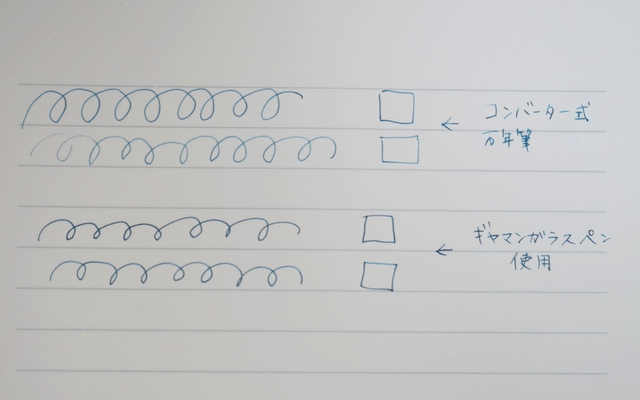 ← コンバーター式
万年筆
← ギヤマンガラスペン
使用